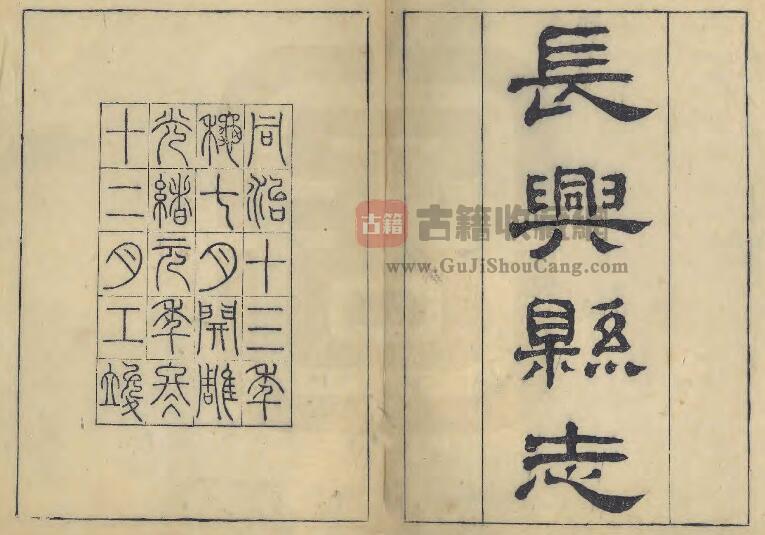 長興縣志
同治十三年
穐七月開雕
光緒元年冬
十二月工竣
古籍 古籍收藏網
www.GuJiShouCang.com